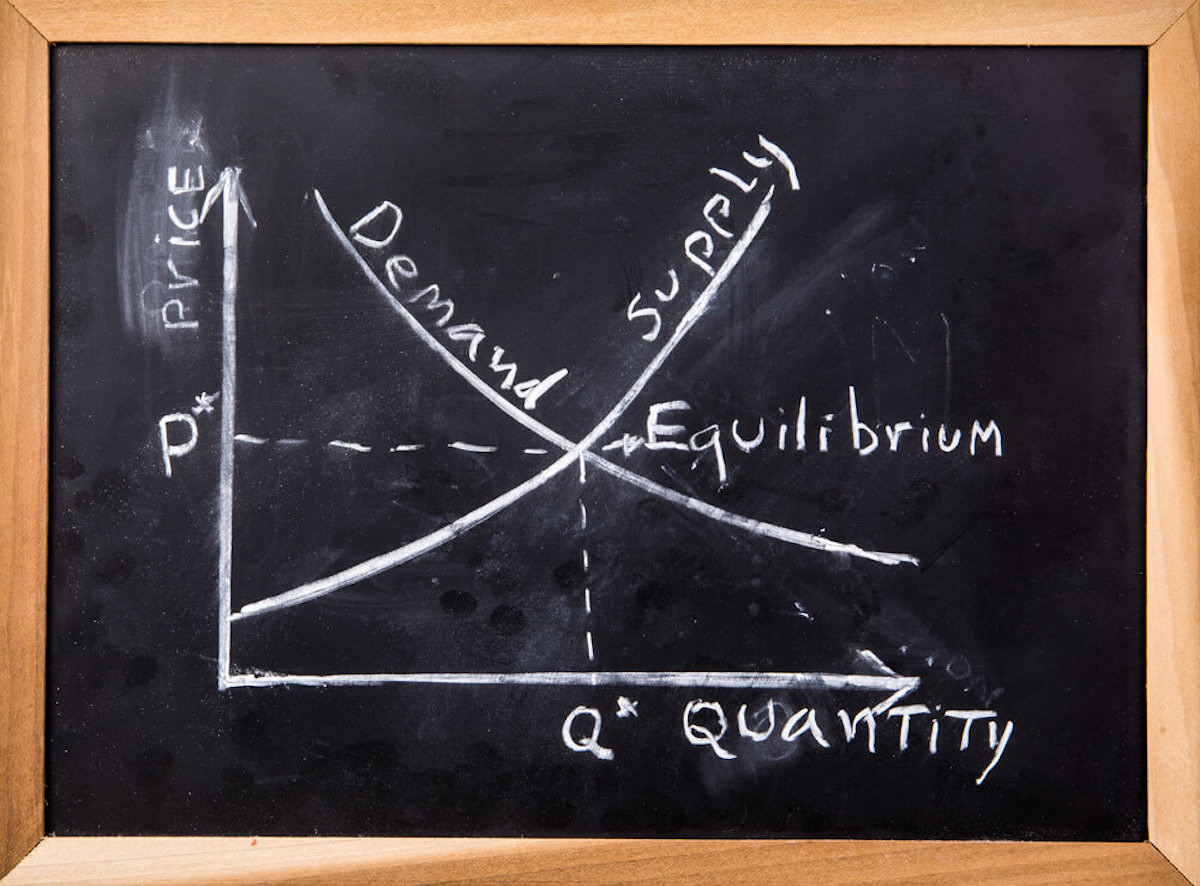 PriCE
Demand
Supply
P*
Equilibrium
Q* QuanTiTy